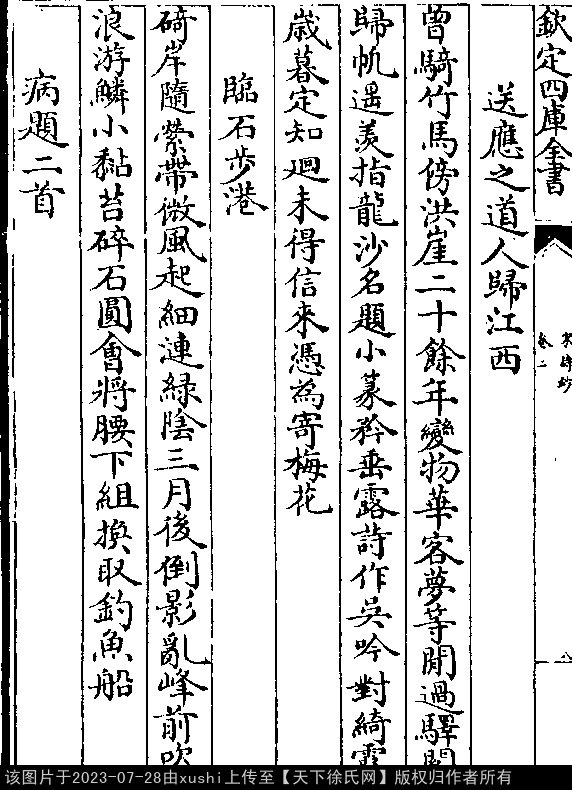 欽定四庫全書
卷二
送應之道人歸江西
曾騎竹馬傍洪崖二十餘年變物華客夢等閒過驛
歸帆遥羡指龍沙名題小篆矜垂露詩作吳吟對綺
歳暮定知廻未得信來憑為寄梅花
臨石歩港
碕岸隨縈帶微風起細漣緑陰三月後倒影亂峰前吹
浪游鱗小黏苔碎石圓會將腰下組換取釣魚船
病題二首
该图片于2023-07-28由xushi上传至【天下徐氏网】版权归作者所有